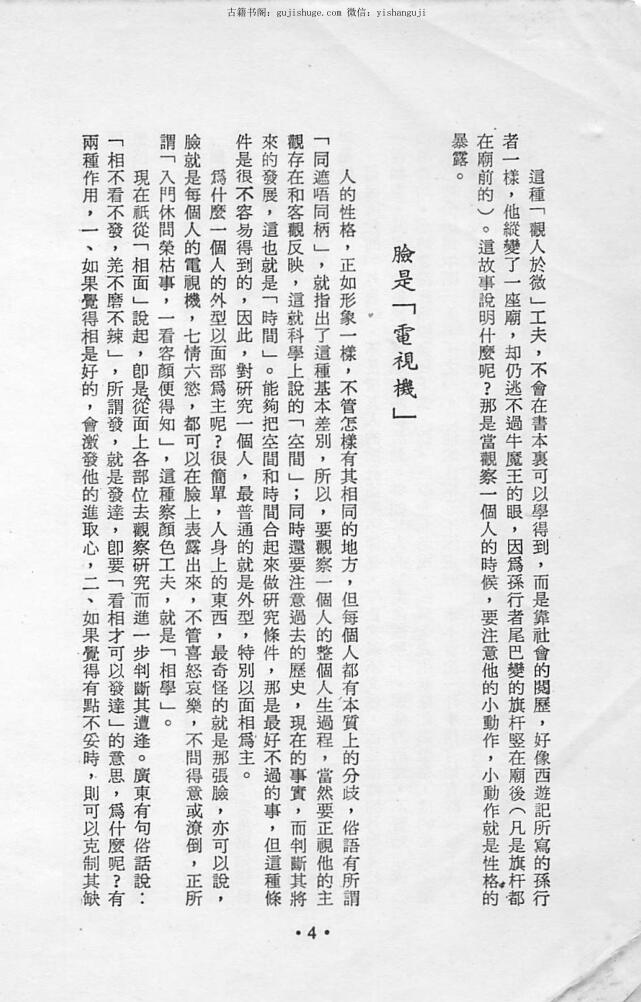 古籍书阁：gujishuge.com 微信：yishanguji
這種「觀人於微」工夫，不會在書本裏可以學得到，而是靠社會的閱歷，好像西遊記所寫的孫行
者一樣，他縱變了一座廟，却仍逃不過牛魔王的眼，因爲孫行者尾巴變的旗杆竪在廟後（凡是旗杆都
在廟前的）。這故事說明什麼呢？那是當觀察一個人的時候，要注意他的小動作，小動作就是性格的
暴露。
臉是「電視機」
人的性格，正如形象一樣，不管怎樣有其相同的地方，但每個人都有本質上的分歧，俗語有所謂
「同遮唔同柄」，就指出了這種基本差別，所以，要觀察一個人的整個人生過程，當然要正視他的主
觀存在和客觀反映，這就科學上說的「空間」；同時還要注意過去的歷史，現在的事實，而判斷其將
來的發展，這也就是「時間」。能夠把空間和時間合起來做研究條件，那是最好不過的事，但這種條
件是很不容易得到的，因此，對研究一個人，最普通的就是外型，特別以面相爲主。
爲什麼一個人的外型以面部爲主呢？很簡單，人身上的東西，最奇怪的就是那張臉，亦可以說，
臉就是每個人的電視機，七情六慾，都可以在臉上表露出來，不管喜怒哀樂，不問得意或潦倒，正所
謂「入門休問榮枯事，一看容顏便得知」，這種察顏色工夫，就是「相學」。
現在祇從「相面」說起，卽是從面上各部位去觀察研究而進一步判斷其遭逢。廣東有句俗話說：
「相不看不發，羌不磨不辣」，所謂發，就是發達，卽要「看相才可以發達」的意思，爲什麼呢？有
兩種作用，一、如果覺得相是好的，會激發他的進取心，二、如果覺得有點不妥時，則可以克制其缺
•4•